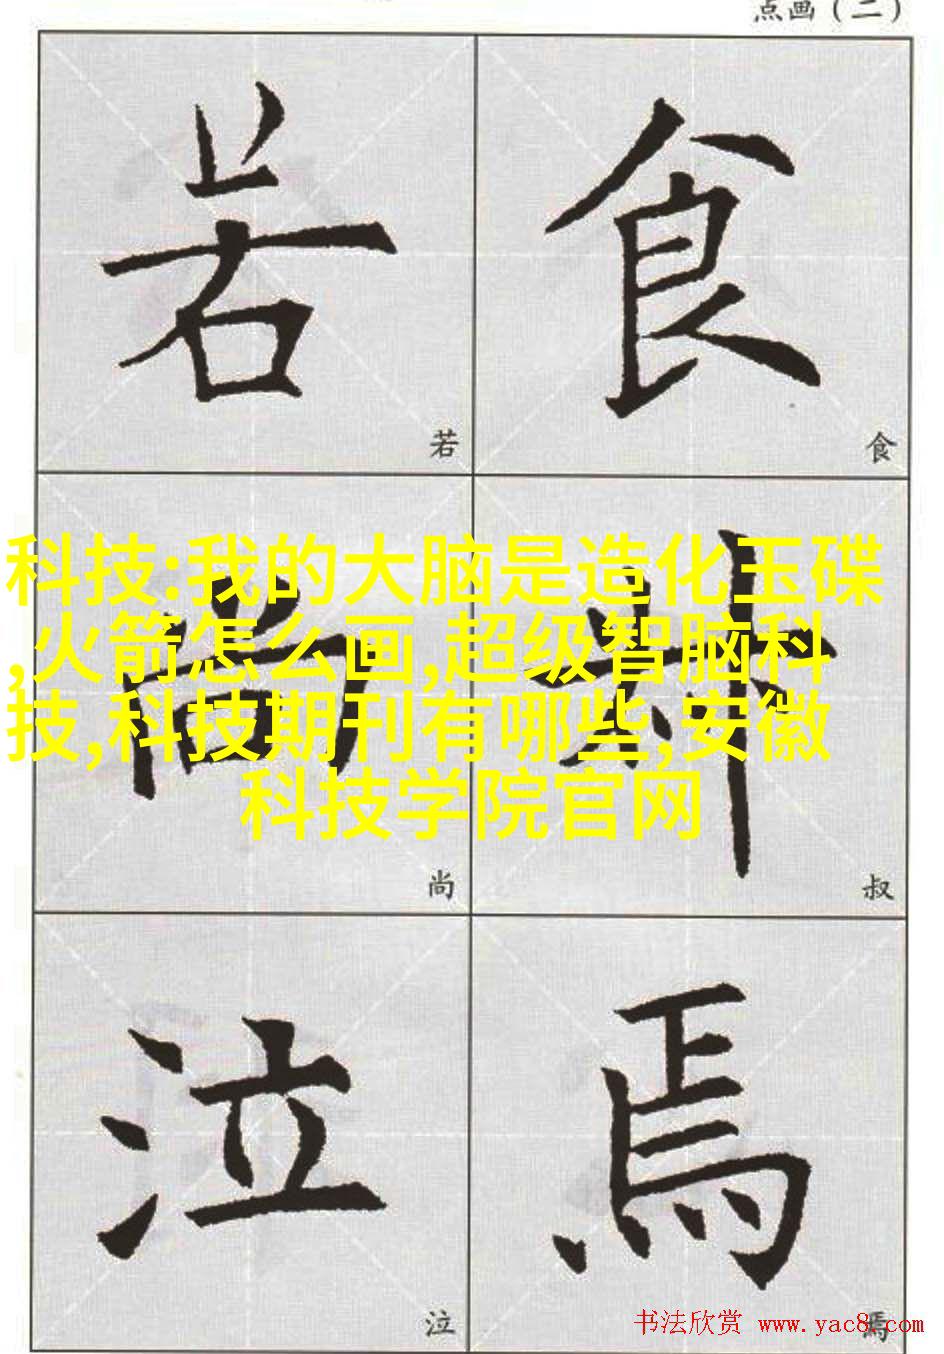 点画（二）
若 食
若 食
科技:我的大脑是造化玉碟
,火箭怎么画,超级智脑科
技,科技期刊有哪些,安徽
科技学院官网
尚 叔
尚 叔
泣 焉
泣 焉
书法欣赏 www.yac8.com